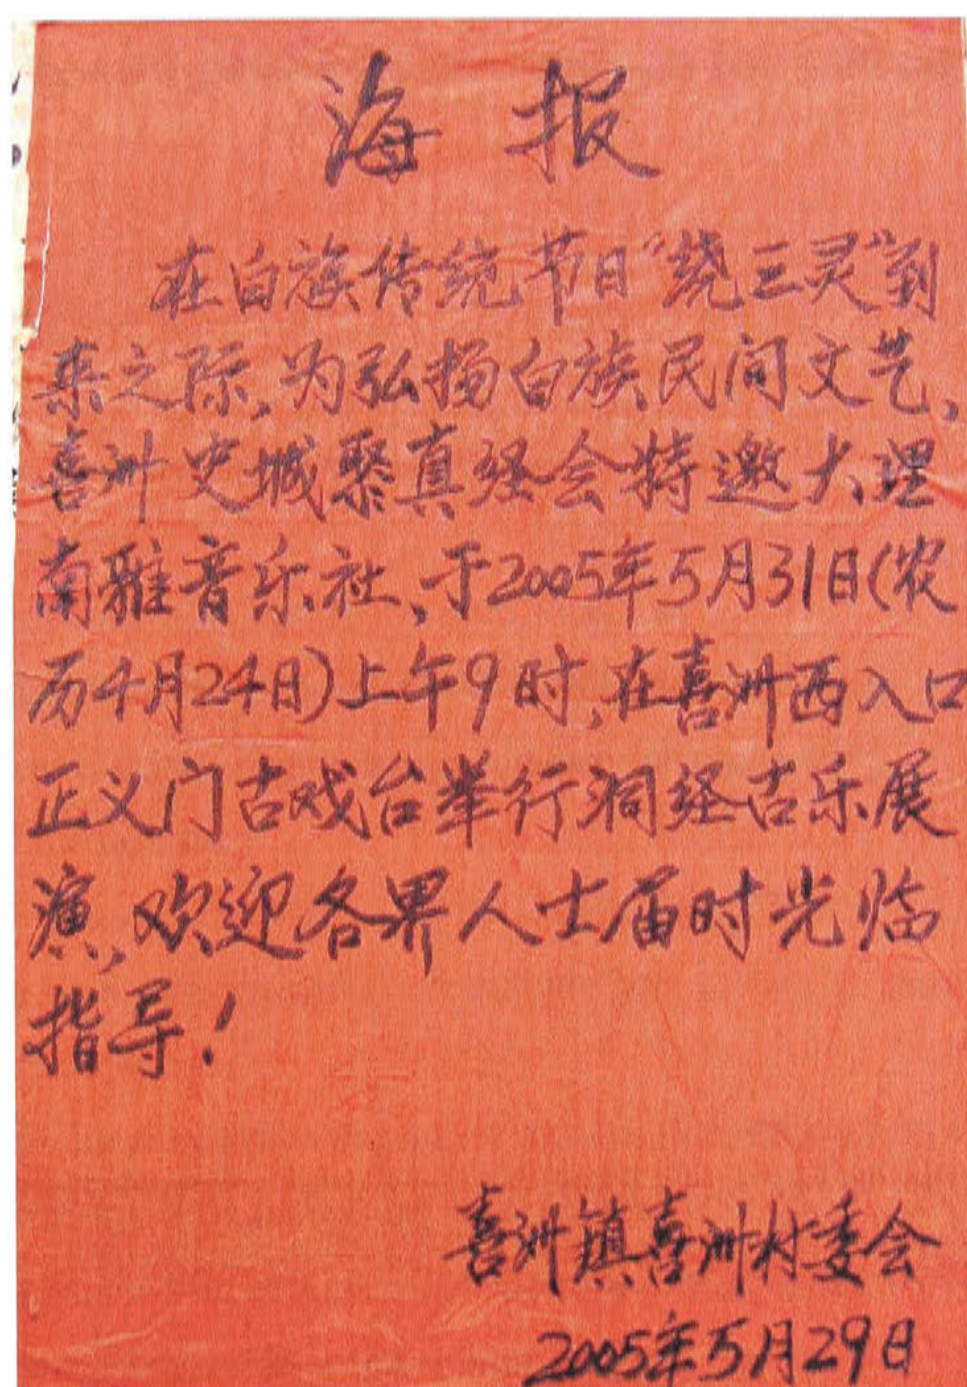 海报
在白族传统节日“绕三灵”到
来之际,为弘扬白族民间文艺,
喜洲史城聚真经会特邀大理
南雅音乐社,于2005年5月31日(农
历4月24日)上午9时,在喜洲西入口
正义门古戏台举行洞经古乐展
演,欢迎各界人士届时光临
指导!
喜洲镇喜洲村委会
2005年5月29日